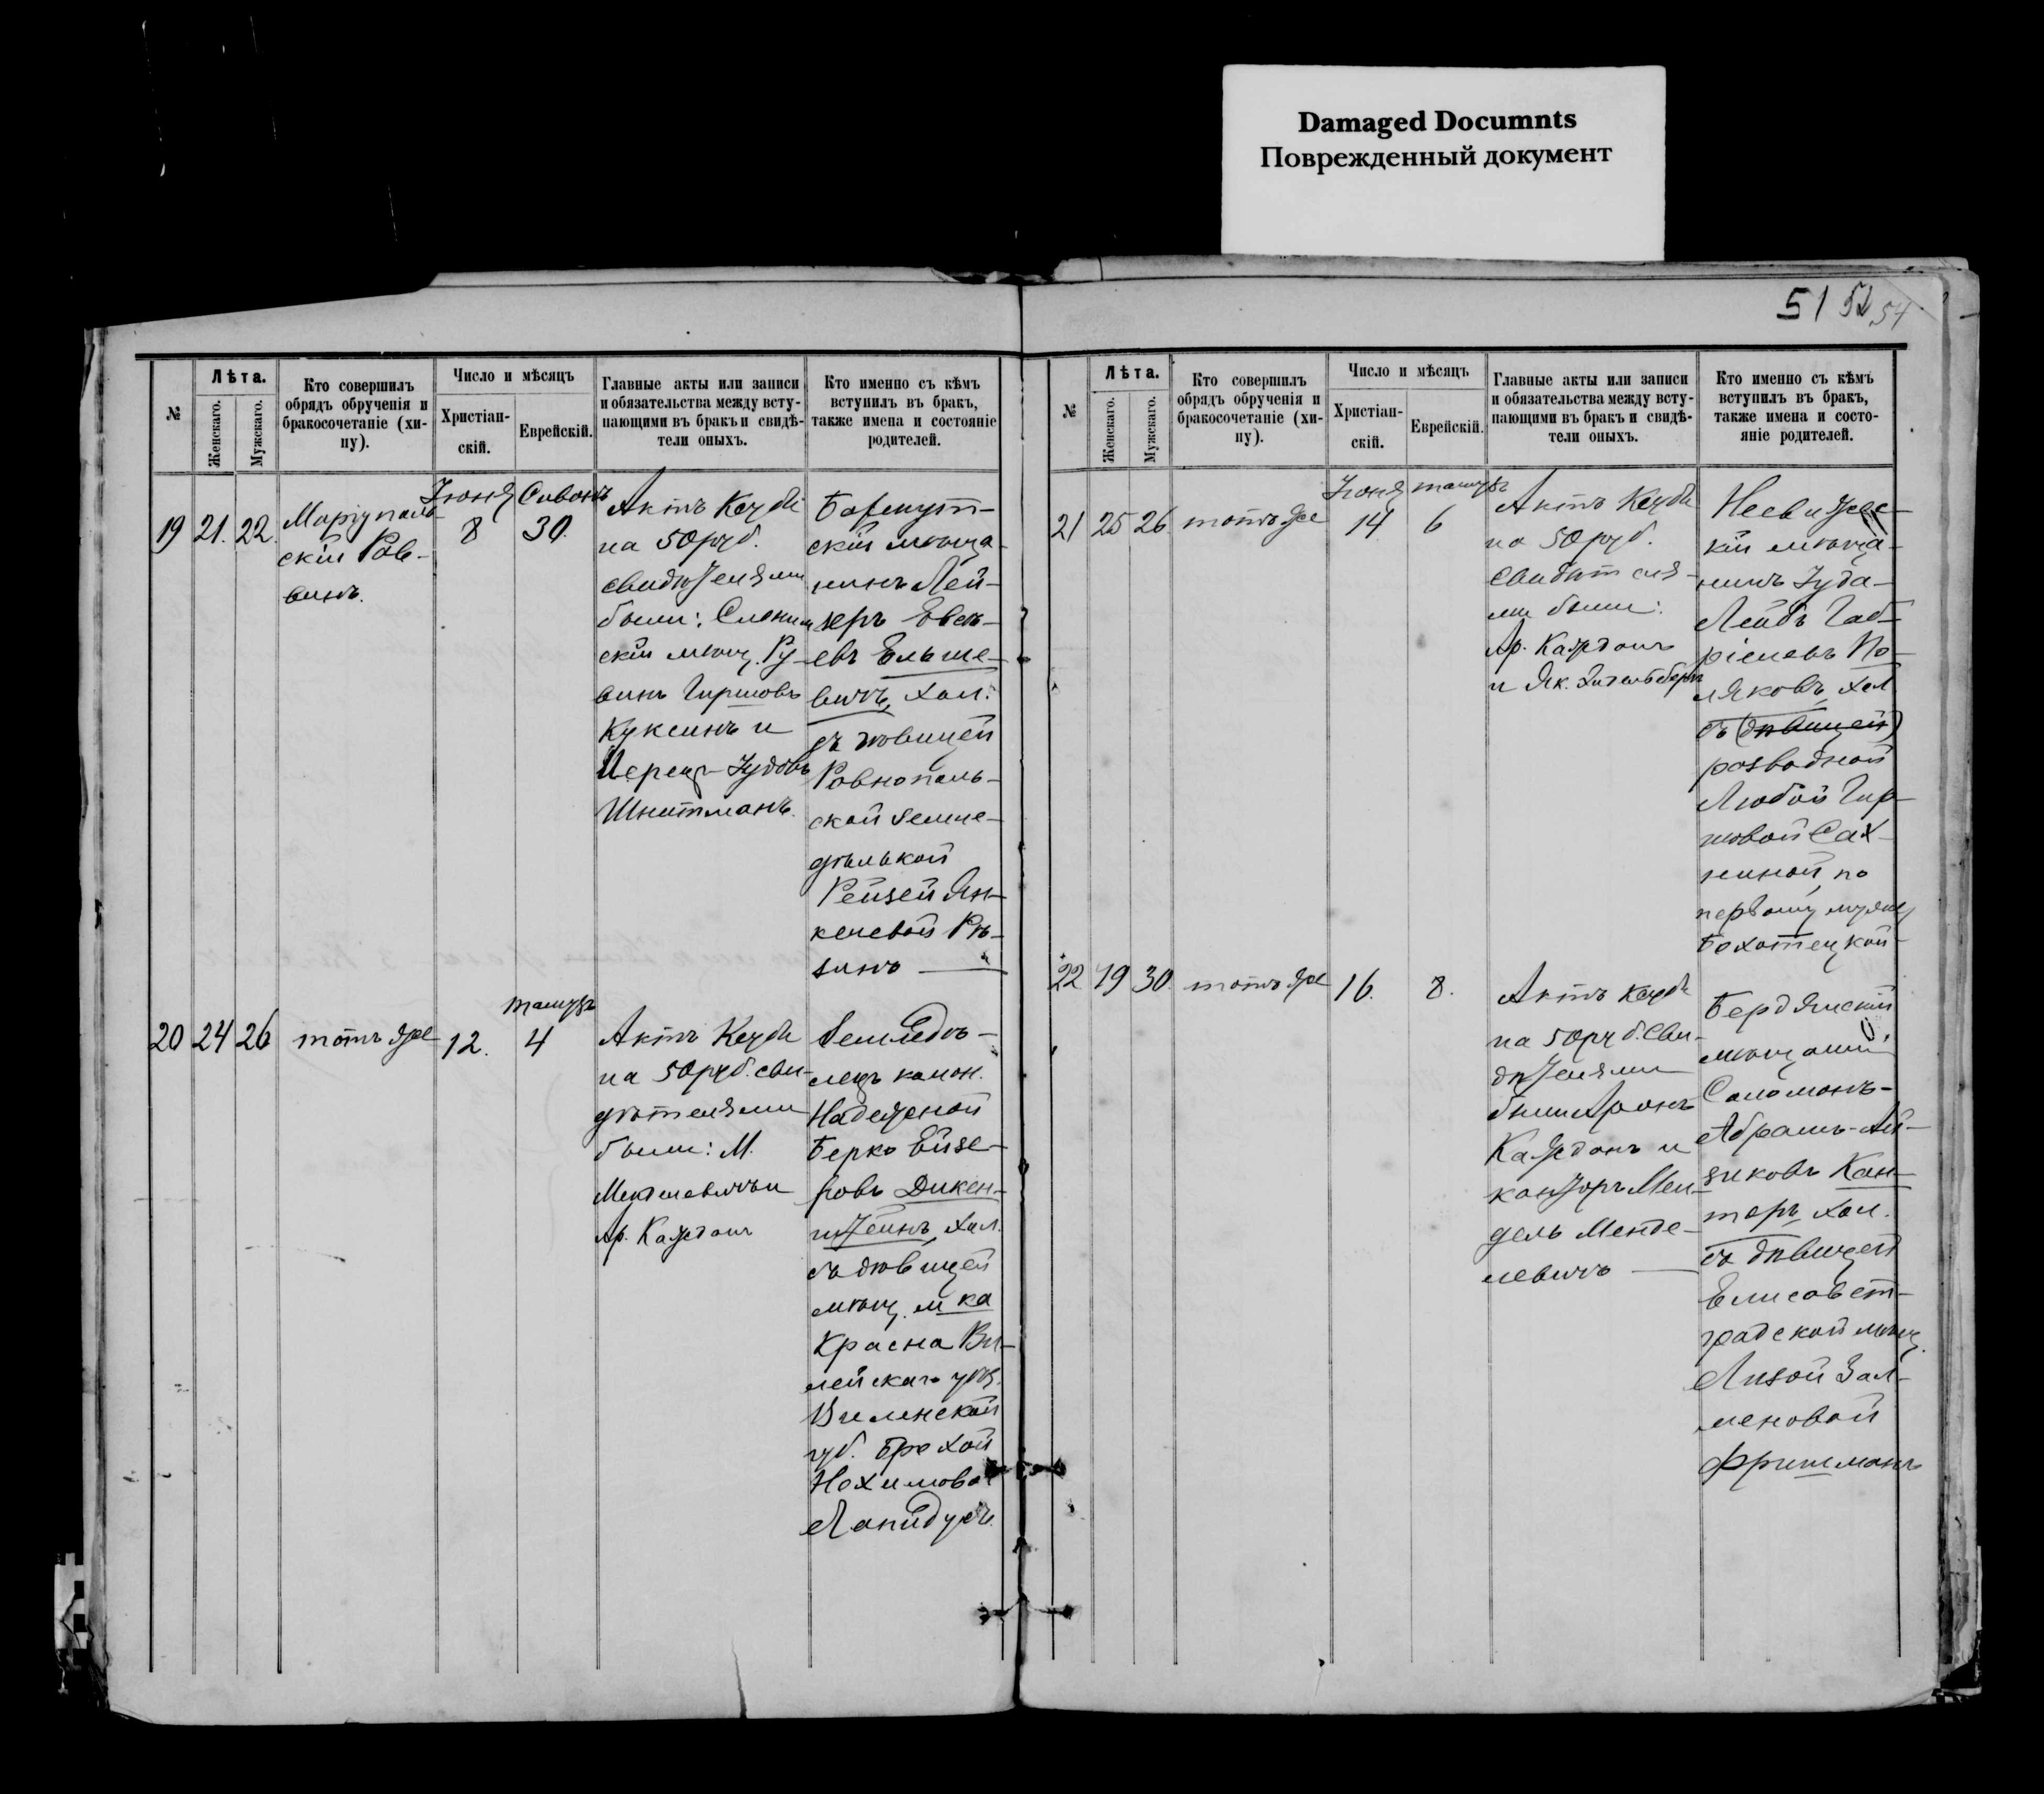 Damaged Documnts
Поврежденный документ
51 52 54
№
Лѣта.
Женскаго.
Мужскаго.
Кто совершилъ
обрядъ обрученія и
бракосочетаніе (хи-
пу).
Число и мѣсяцъ
Христіан-
скій.
Еврейскій.
Главные акты или записи
и обязательства между всту-
пающими въ бракъ и свидѣ-
тели оныхъ.
Кто именно съ кѣмъ
вступилъ въ бракъ,
также имена и состояніе
родителей.
19 21. 22.
Маріуполь-
скій Рав-
винъ.
Іюня
8
Сивонъ
30.
Актъ Кецбі
на 50 руб.
свидѣтелями
были: Слоним
скій мѣщ. Ру-
винъ Гиршовъ
Куксинъ и
Перецъ-Іудовъ
Шнитманъ.
Бахмут-
скій мѣща-
нинъ Лей-
зеръ
евъ Ельше-
вичъ, хол.
съ дѣвицей
Ровнополь-
ской земле-
дѣлькой
Рейзей Ян-
келевой Рѣ-
зинъ —
20 24 26
тотъ же
12.
тамузъ
4
Актъ Кецби
на 50 руб. сви-
дѣтелями
были: М.
Менделевичъ и
Ар. Каждан
Земледѣ-
лецъ колон.
Надежной
Берко Ейзе-
ровъ Дикен-
штейнъ, хол.
съ дѣвицей
мѣщ. м-ка
Красна Ви-
лейскаго уѣз.
Виленской
губ. Брохой
Нохимовой
Лапидусъ.
№
Лѣта.
Женскаго.
Мужскаго.
Кто совершилъ
обрядъ обрученія и
бракосочетаніе (хи-
пу).
Число и мѣсяцъ
Христіан-
скій.
Еврейскій.
Главные акты или записи
и обязательства между всту-
пающими въ бракъ и свидѣ-
тели оныхъ.
Кто именно съ кѣмъ
вступилъ въ бракъ,
также имена и состо-
яніе родителей.
21 25 26.
тотъ же
Іюня
14
тамузъ
6
Актъ Кецби
на 50 руб.
свидѣтеля-
ми были:
Ар. Кажданъ
и Як. Зительберг
кій мѣща-
нинъ Іуда-
Лейбъ Габ-
ріелевъ По-
ляковъ, хол.
съ (дѣвицей)
разводной
Любой Гир-
шовой Сах-
ниной, по
первому мужу
Бохотецкой
22 19 30.
тотъ же
16.
8.
Актъ Кецби
на 50 руб. сви-
дѣтелями
были Аронъ
Кажданъ и
канторъ Мен-
дель Менде-
левичъ —
Бердянскій
мѣщанинъ
Соломонъ-
Абрамъ-Ай-
зиковъ Кан-
торъ, хол.
съ дѣвицей
Елисавет-
градской мѣщ.
Лизой Зал-
меновой
Фришманъ